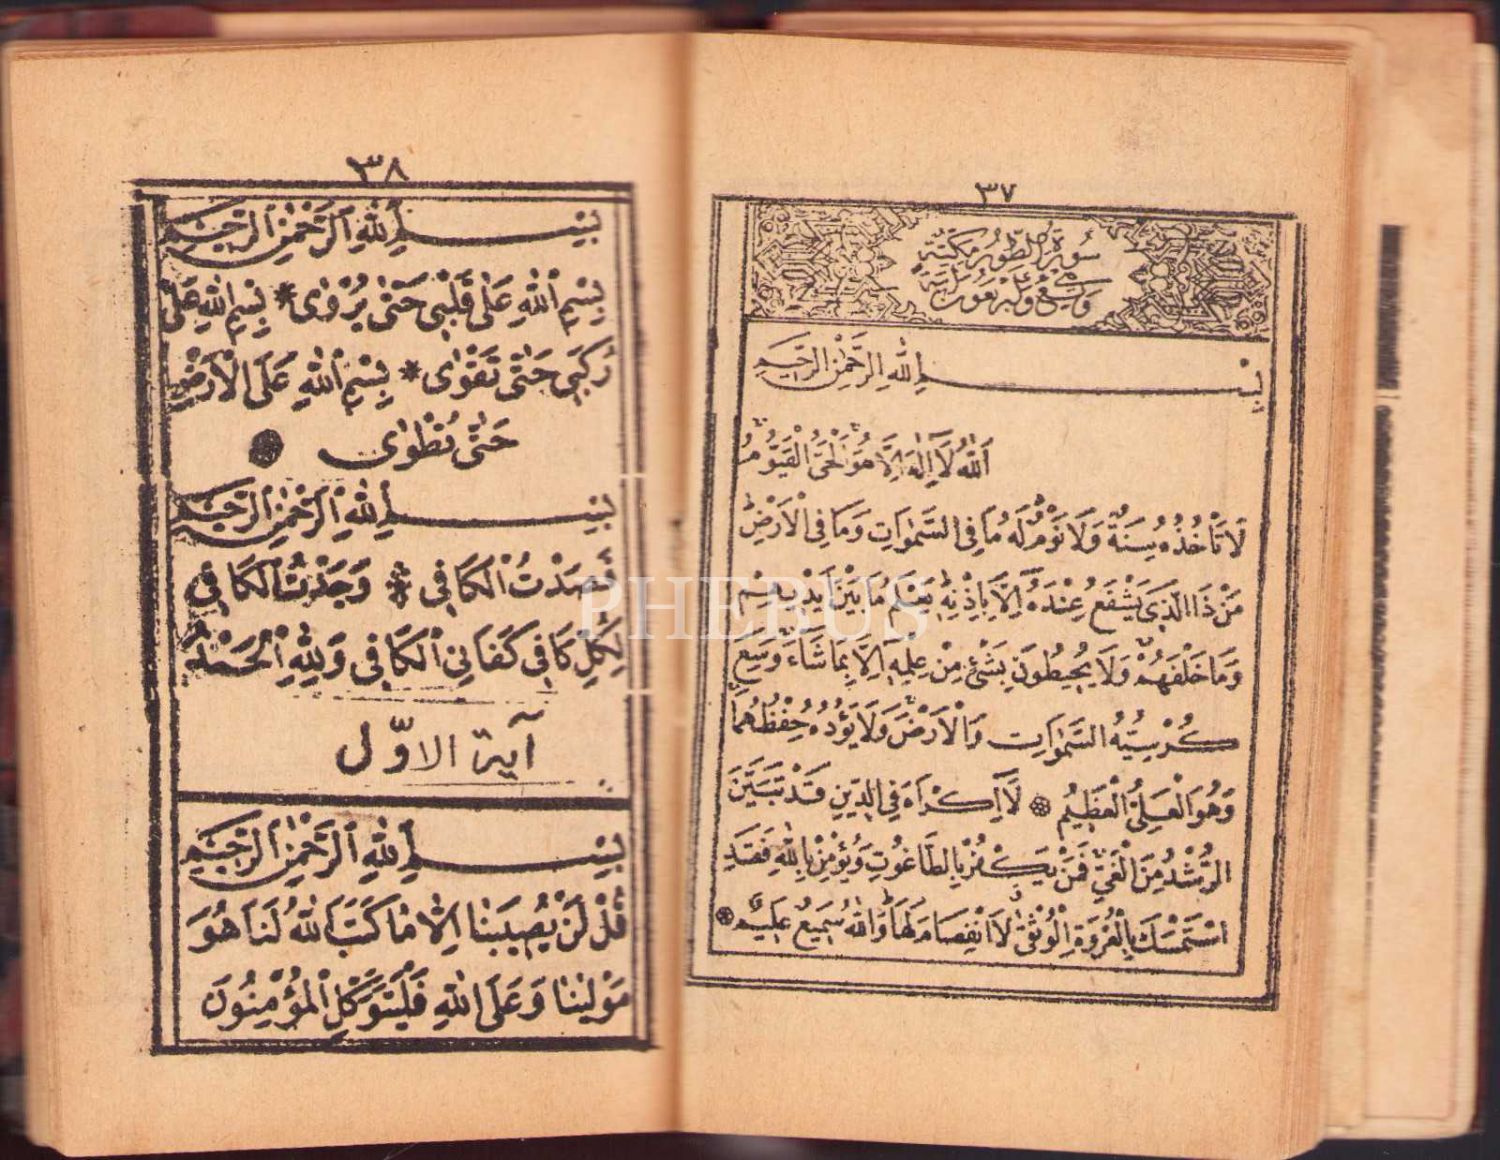 ٣٧
سورة الطور مكية
وهي تسع وأربعون آية
بِسْمِ اللهِ الرَّحْمٰنِ الرَّحِيمِ
اَللهُ لَا اِلٰهَ اِلَّا هُوَ اَلْحَىُّ الْقَيُّومُ
لَا تَأْخُذُهُ سِنَةٌ وَلَا نَوْمٌ لَهُ مَا فِى السَّمٰوَاتِ وَمَا فِى الْاَرْضِ
مَنْ ذَا الَّذِى يَشْفَعُ عِنْدَهُ اِلَّا بِاِذْنِهِ يَعْلَمُ مَا بَيْنَ اَيْدِيهِمْ
وَمَا خَلْفَهُمْ وَلَا يُحِيطُونَ بِشَىْءٍ مِنْ عِلْمِهِ اِلَّا بِمَا شَاءَ وَسِعَ
كُرْسِيُّهُ السَّمٰوَاتِ وَالْاَرْضَ وَلَا يَؤُدُهُ حِفْظُهُمَا
وَهُوَ الْعَلِىُّ الْعَظِيمُ ۞ لَا اِكْرَاهَ فِى الدِّينِ قَدْ تَبَيَّنَ
الرُّشْدُ مِنَ الْغَىِّ فَمَنْ يَكْفُرْ بِالطَّاغُوتِ وَيُؤْمِنْ بِاللهِ فَقَدِ
اسْتَمْسَكَ بِالْعُرْوَةِ الْوُثْقٰى لَا انْفِصَامَ لَهَا وَاللهُ سَمِيعٌ عَلِيمٌ ۞
٣٨
بِسْمِ اللهِ الرَّحْمٰنِ الرَّحِيمِ
بِسْمِ اللهِ عَلٰى قَلْبِى حَتّٰى يُرْوٰى * بِسْمِ اللهِ عَلٰى
رُكَبِى حَتّٰى تَقْوٰى * بِسْمِ اللهِ عَلَى الْاَرْضِ
حَتّٰى تُطْوٰى
بِسْمِ اللهِ الرَّحْمٰنِ الرَّحِيمِ
قَصَدْتُ الْكَافِى * وَجَدْتُ الْكَافِى
لِكُلٍّ كَافِى كَفَانِىَ الْكَافِى وَلِلّٰهِ الْحَمْدُ
آية الاوّل
بِسْمِ اللهِ الرَّحْمٰنِ الرَّحِيمِ
قُلْ لَنْ يُصِيبَنَا اِلَّا مَا كَتَبَ اللهُ لَنَا هُوَ
مَوْلٰينَا وَعَلَى اللهِ فَلْيَتَوَكَّلِ الْمُؤْمِنُونَ
PHEBUS